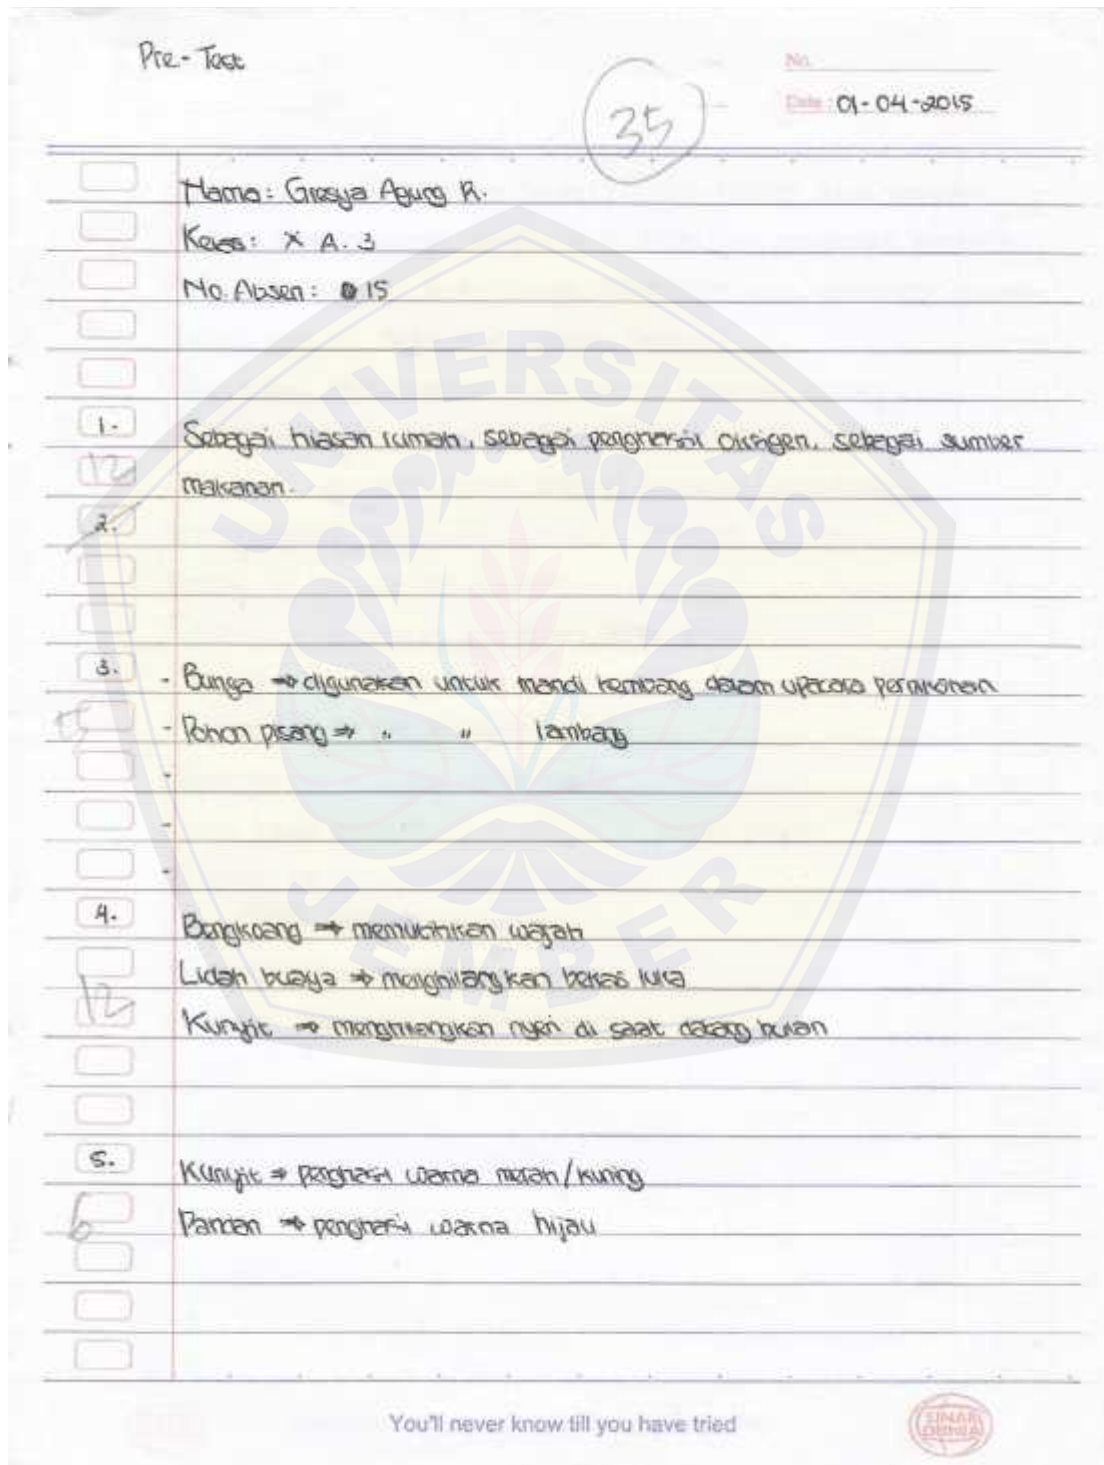 Pre-Test
No.
35
Date : 01-04-2015
Nama: Gresya Agung R.
Kelas: X A. 3
No. Absen: 15
1. Sebagai hiasan rumah, sebagai penghasil oksigen, sebagai sumber
12 makanan.
2.
3. - Bunga ⇒ digunakan untuk mandi kembang dalam upacara pernikahan
- Pohon pisang ⇒ " " lambang
-
-
-
4. Bengkoang ⇒ memutihkan wajah
Lidah buaya ⇒ menghilangkan bekas luka
12 Kunyit ⇒ menghilangkan nyeri di saat datang bulan
5. Kunyit ⇒ penghasil warna merah/kuning
6 Pandan ⇒ penghasil warna hijau
You'll never know till you have tried
SINAR DUNIA
UNIVERSITAS
JEMBER